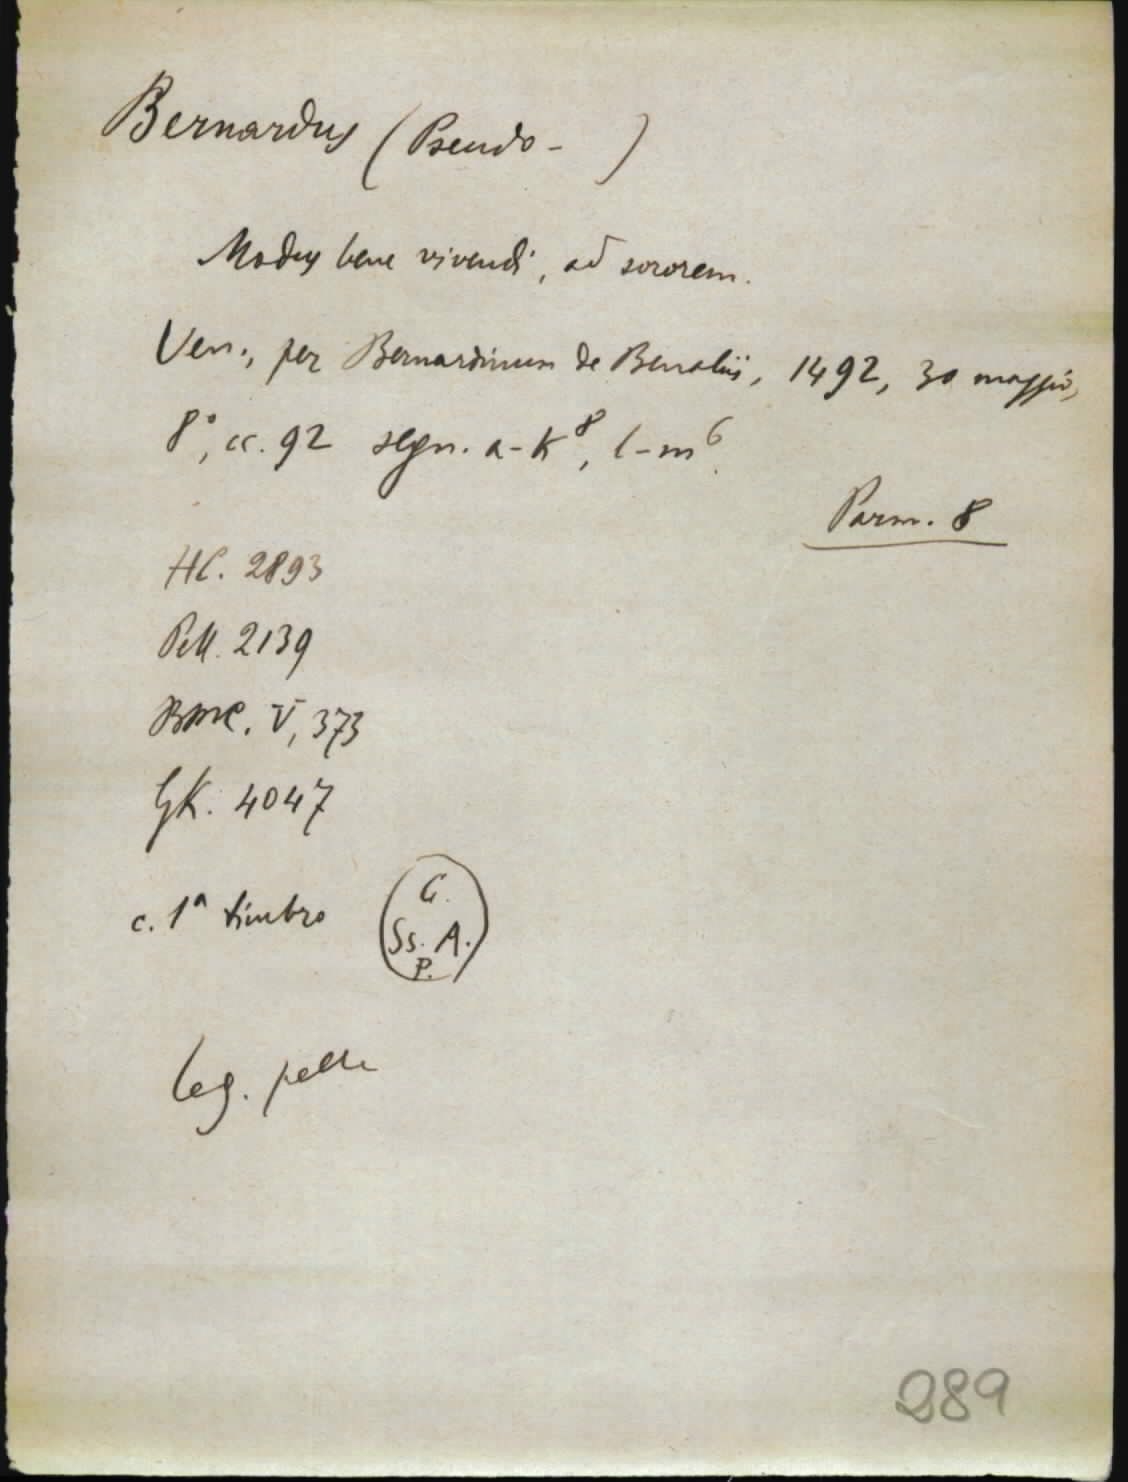 Bernardus (Pseudo- )
Modus bene vivendi, ad sororem.
Ven., per Bernardinum de Benaliis, 1492, 30 maggio,
8°, cc. 92 segn. a-k⁸, l-m⁶.
Parm. 8
HC. 2893
Pell. 2139
BMC. V, 373
GK. 4047
c. 1ª timbro
G.
Ss. A.
P.
Leg. pelle
289